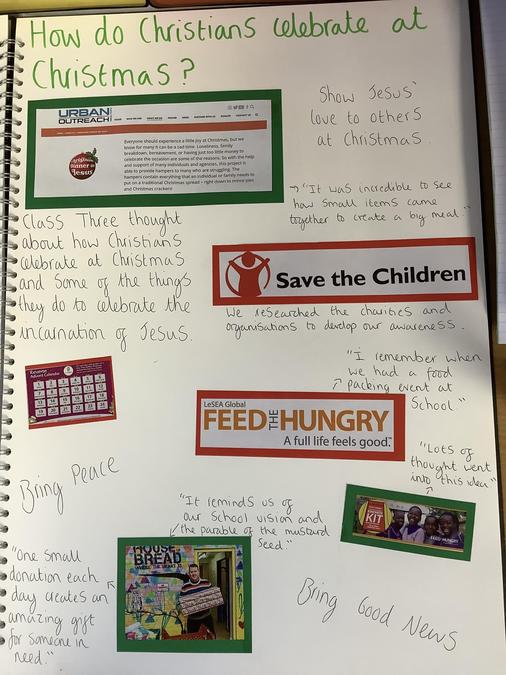 How do Christians celebrate at
Christmas?
URBAN
OUTREACH
Everyone should experience a little joy at Christmas, but we
know for many it can be a sad time. Loneliness, family
breakdown, bereavement, or having just too little money to
celebrate the occasion are some of the reasons. So with the help
and support of many individuals and agencies, this project is
able to provide hampers to many who are struggling. The
hampers contain everything that an individual or family needs to
put on a traditional Christmas spread – right down to mince pies
and Christmas crackers!
Christmas
Dinner
Jesus
Show Jesus'
love to others
at Christmas.
"It was incredible to see
how small items came
together to create a big meal."
Class Three thought
about how Christians
celebrate at Christmas
and some of the things
they do to celebrate the
incarnation of Jesus.
Save the Children
We researched the charities and
organisations to develop our awareness.
Reverse
Advent Calendar
"I remember when
we had a food
packing event at
School"
LeSEA Global
FEED THE HUNGRY
A full life feels good.™
"Lots of
thought went
into this idea"
Bring Peace
"It reminds us of
our school vision and
the parable of the mustard
seed."
KIT
FEED THE HUNGRY
HOUSE
BREAD
"One small
donation each
day creates an
amazing gift
for someone in
need."
Bring Good News